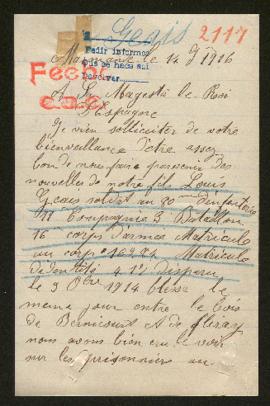 Geais
2117
Pedir informes
que se hace así
devolver
Fecho
Marquant le 14 1916
A Sa Magesté le Roi
d'Espagne
Je vien solliciter de votre
bienveillance d'etre assez
bon de nous faire parvenir des
nouvelles de notre fils Louis
Geais soldat au 80 d'infanterie
11 Compagnie 3 Bataillon
16 corps d'armee Matricule
au corps Matricule
d'identite disparu
le 3 9bre 1914 blessé le
meme jour entre le bois
de et de
nous avons bien cru le voir
sur les prisonniers au